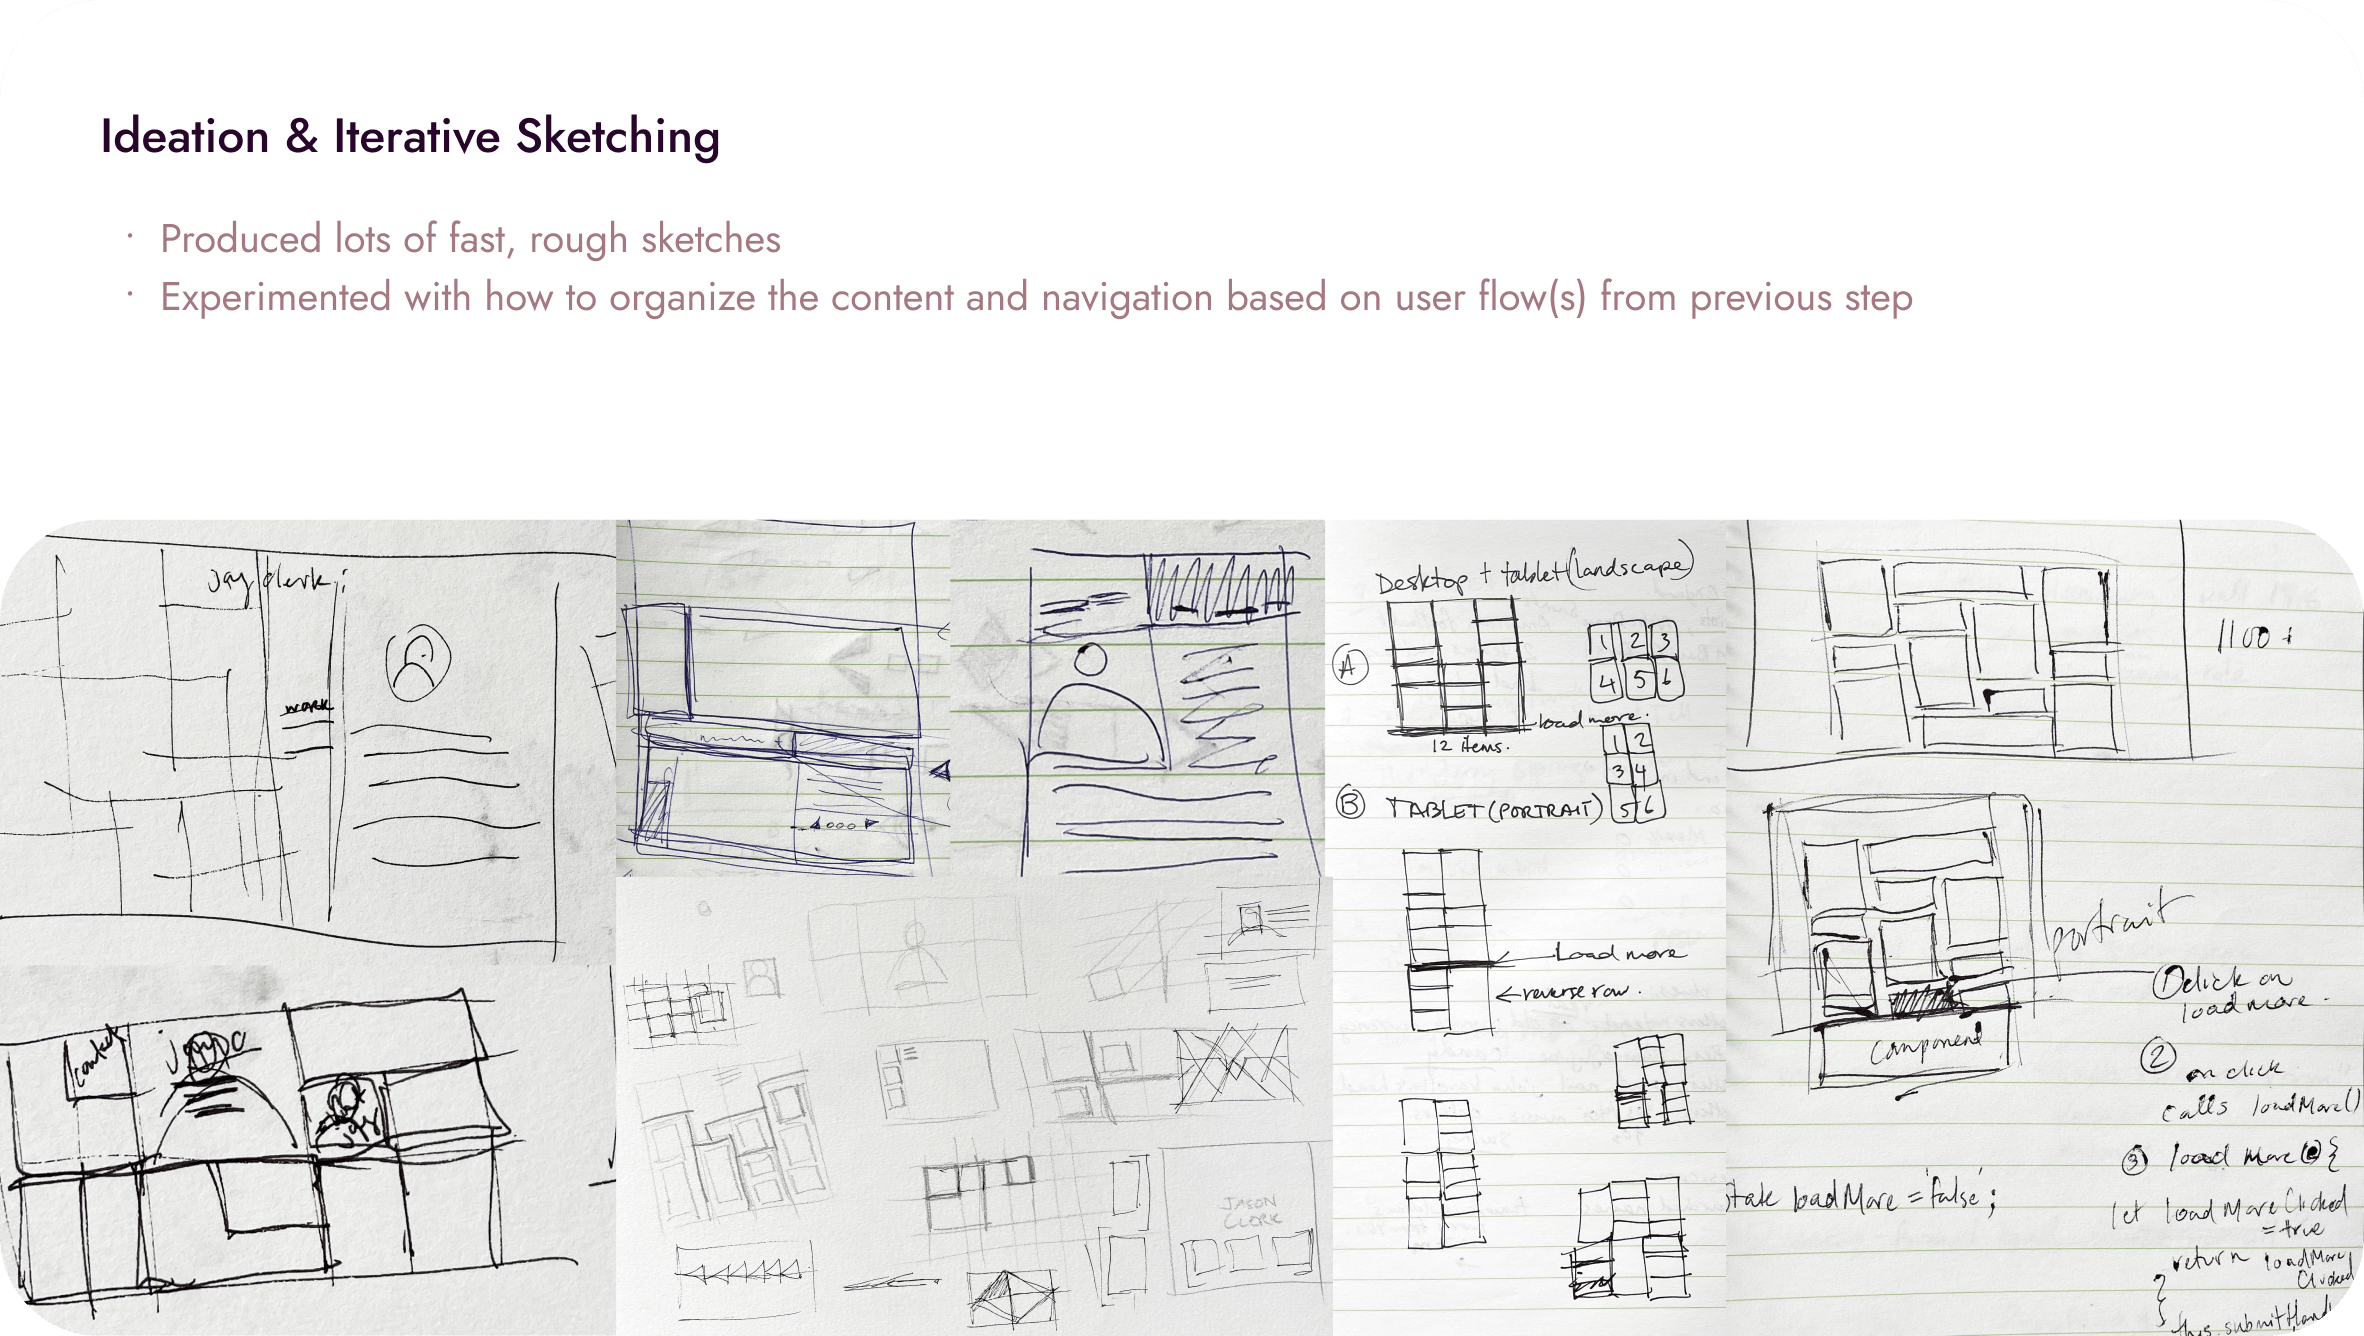 Ideation & Iterative Sketching
· Produced lots of fast, rough sketches
· Experimented with how to organize the content and navigation based on user flow(s) from previous step
jay clerk ;
work
contact
Desktop + tablet (landscape)
A
1 2 3
4 5 6
load more.
12 items.
1 2
3 4
5 6
B TABLET (PORTRAIT)
Load more
reverse row.
JASON
CLERK
1100 +
portrait
Component
1 click on
load more.
2 on click
calls loadMore()
3 load More() {
state loadMore = 'false';
let loadMoreClicked
= true
return loadMore
Clicked
}
}
this.submitHand